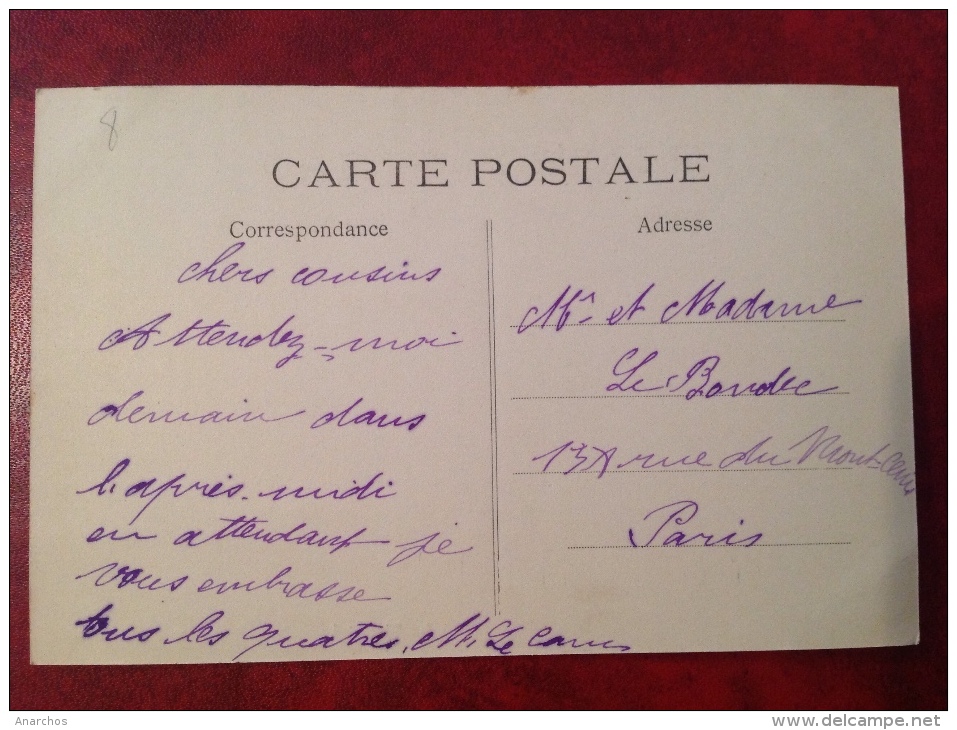 8
CARTE POSTALE
Correspondance
chers cousins
Attendez-moi
demain dans
l'après-midi
en attendant je
vous embrasse
tous les quatres, M. Le
Adresse
Mr et Madame
Le Bondec
rue du Mont-Cenis
Paris
Anarchos
www.delcampe.net